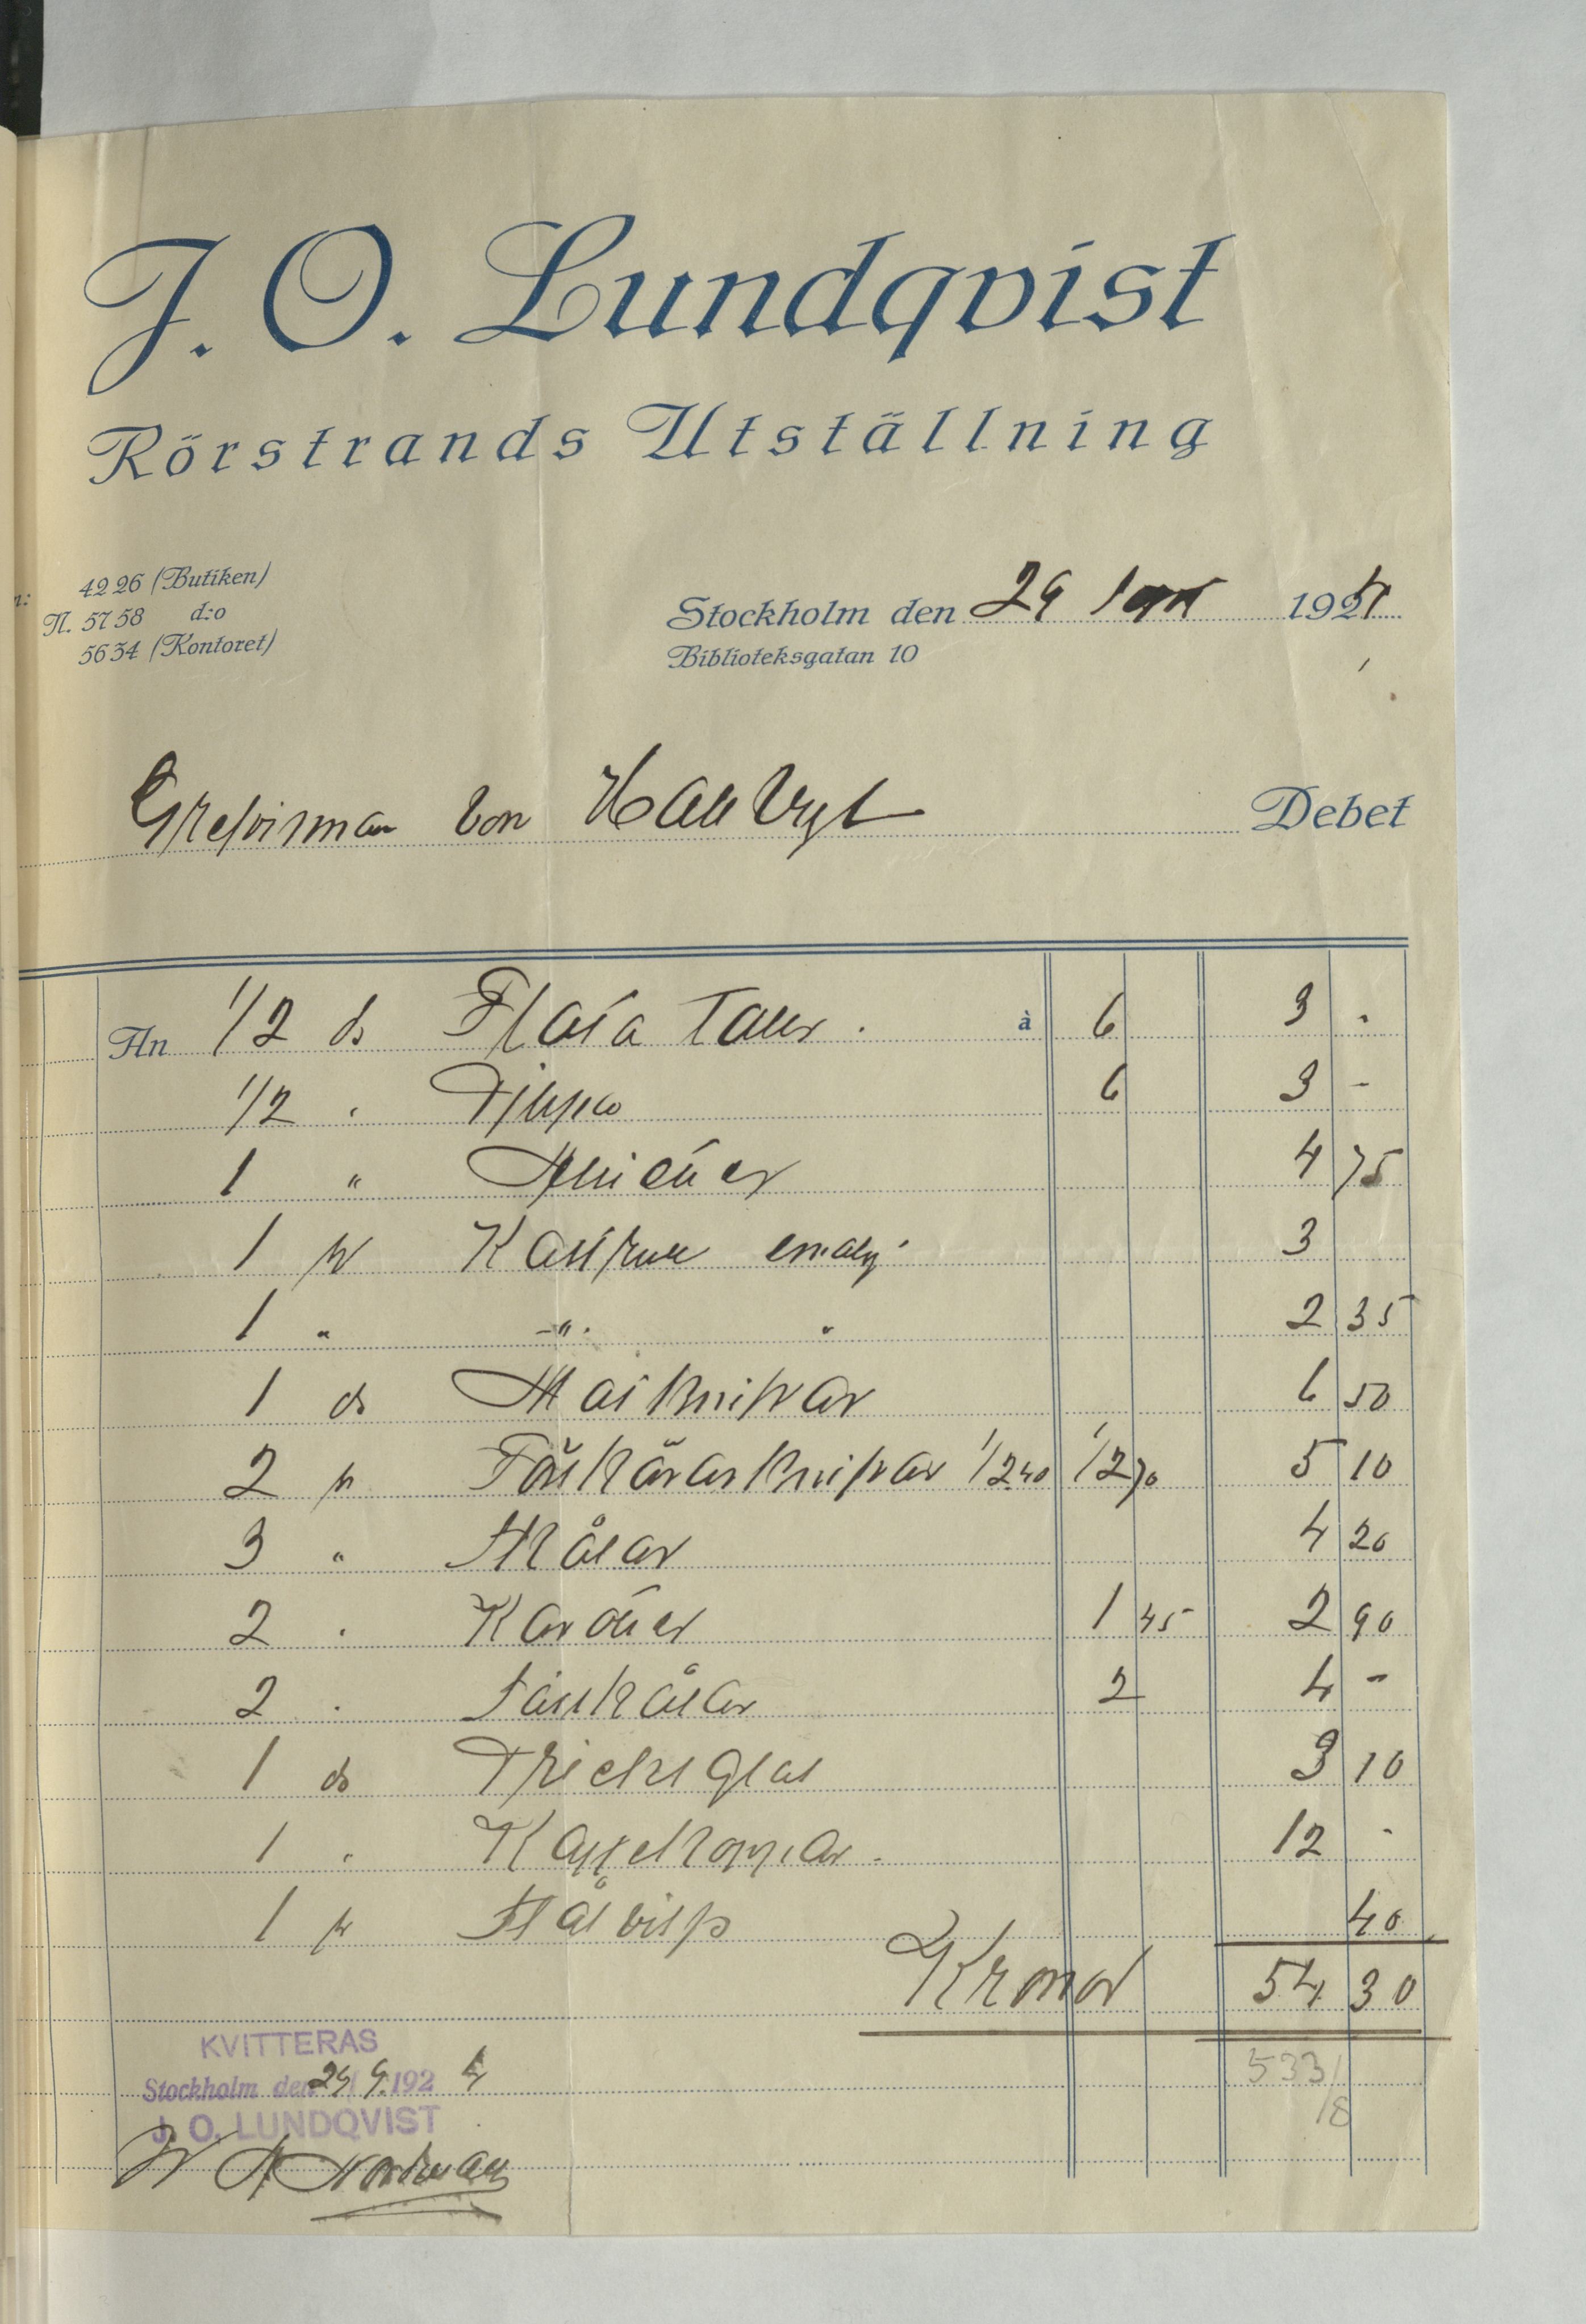 J. O. Lundqvist
Rörstrands Utställning
n: 4226 (Butiken)
N. 5758 d:o
5634 (Kontoret)
Stockholm den 29 Sept 1924
Biblioteksgatan 10
Grefvinnan von Hallwyl Debet
An 1/2 ds Flata Tallr. à 6 3 -
1/2 " Djupa 6 3 -
1 " Assietter 4 75
1 st Kastrull emalj 3
1 " -"- " 2 35
1 ds Matknifvar 6 50
2 st Förskärarknifvar 1/2 40 1/2 70 5 10
3 " Skålar 4 20
2 " Karotter 1 45 2 90
2 " Såsskålar 2 4 -
1 ds Dricksglas 3 10
1 " Kaffekoppar 12 -
1 st Stålvisp 40
Kronor 54 30
KVITTERAS
Stockholm den 29/9 1924
J. O. LUNDQVIST
533/
18